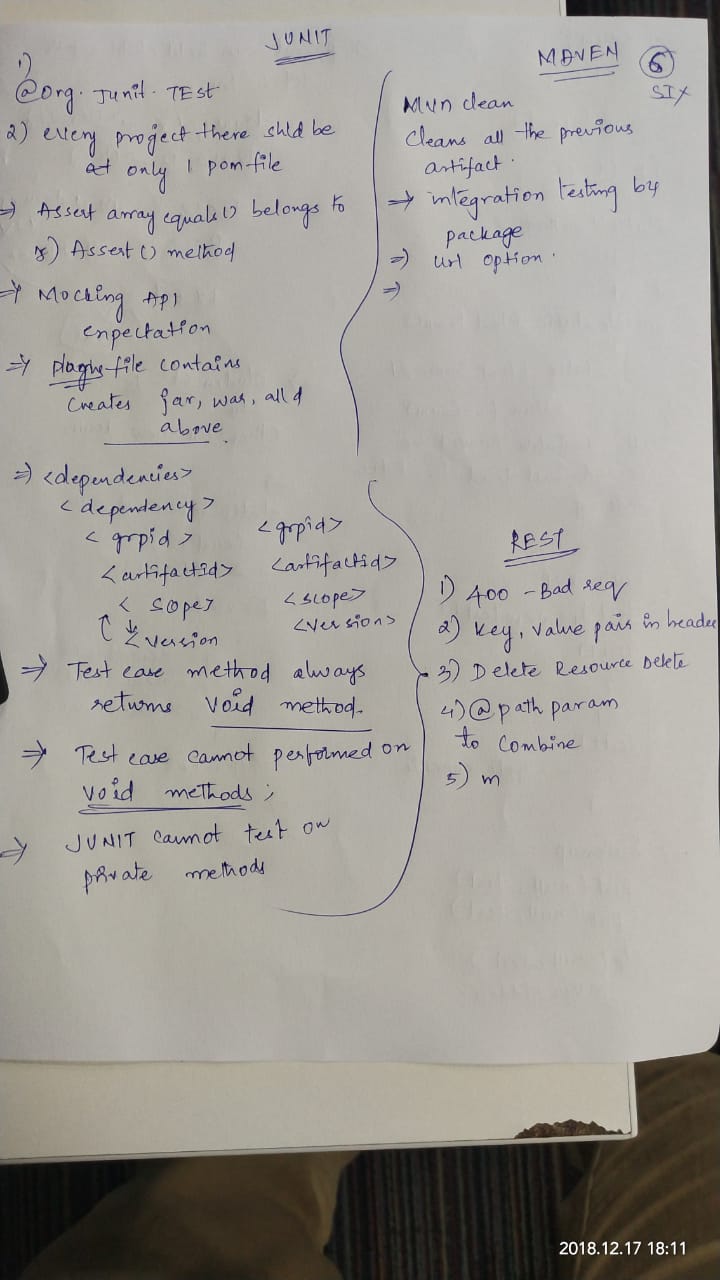 JUNIT
1)
@org. Junit. TEst
2) every project there shld be
at only 1 pom file
⇒ Assert array equals () belongs to
Assert () method
⇒ Mocking API
expectation
⇒ file contains
Creates jar, war, all d
above
⇒ <dependencies>
<dependency>
< grpid > <grpid>
<artifactid> <artifactid>
< scope> <scope>
<version <version>
⇒ Test case method always
returns void method.
⇒ Test case cannot performed on
void methods ;
⇒ JUNIT cannot test on
private methods
MAVEN 6
SIX
Mvn clean
Cleans all the previous
artifact.
⇒ integration testing by
package
⇒ url option.
⇒
REST
1) 400 - Bad req
2) key, value pair in header
3) Delete Resource Delete
4) @ path param
to Combine
5) m
2018.12.17 18:11